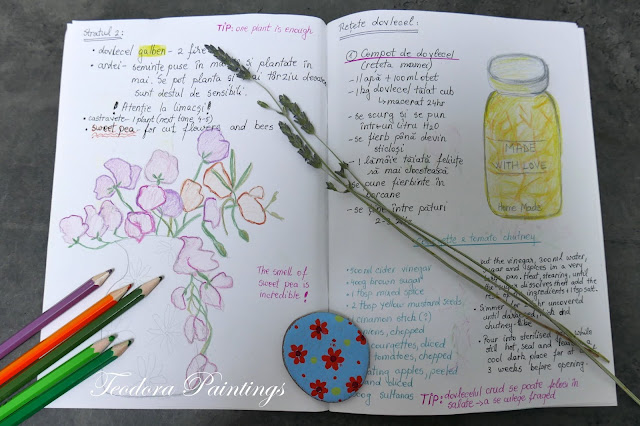 Stratul 2:
TIP: one plant is enough
• dovlecel galben - 2 fire
• ardei - semințe puse în și plantate în
mai. Se pot planta și mai târziu
sunt destul de sensibili.
! Atenție la limacși!
• castravete - 1 plant (next time 4-5)
• sweet pea - for cut flowers and bees
The smell of
sweet pea is
incredible!
Rețete dovlecel:
① Compot de dovlecel
(rețeta mamei)
- 1l apă + 100ml oțet
- 1kg dovlecel tăiat cub
macerat 24hr
- se scurg și se pun
într-un litru H2O
- se fierb până devin
sticloși
- 1 lămâie tăiată feliuțe
să mai clocotească
- se pune fierbinte în
borcane
- se pune între pături
MADE
WITH LOVE
Home Made
tomato chutney
• 500ml cider vinegar
brown sugar
• 1 tbsp mixed spice
• 2 tbsp yellow mustard seeds
cinnamon stick (?)
chopped
courgettes, diced
tomatoes, chopped
apples, peeled
and diced
sultanas
• put the vinegar, 300ml water,
sugar and spices in a very
pan. Heat, stirring, until
the sugar dissolves then add the
rest of the ingredients + 1 tsp salt.
• Simmer for uncovered
until darkened, thick and
chutney-like
• Pour into sterilised while
still hot, seal and
cool dark place for at
3 weeks before opening.
TIP: dovlecelul crud se poate folosi în
salate → a se culege fraged
Teodora Paintings